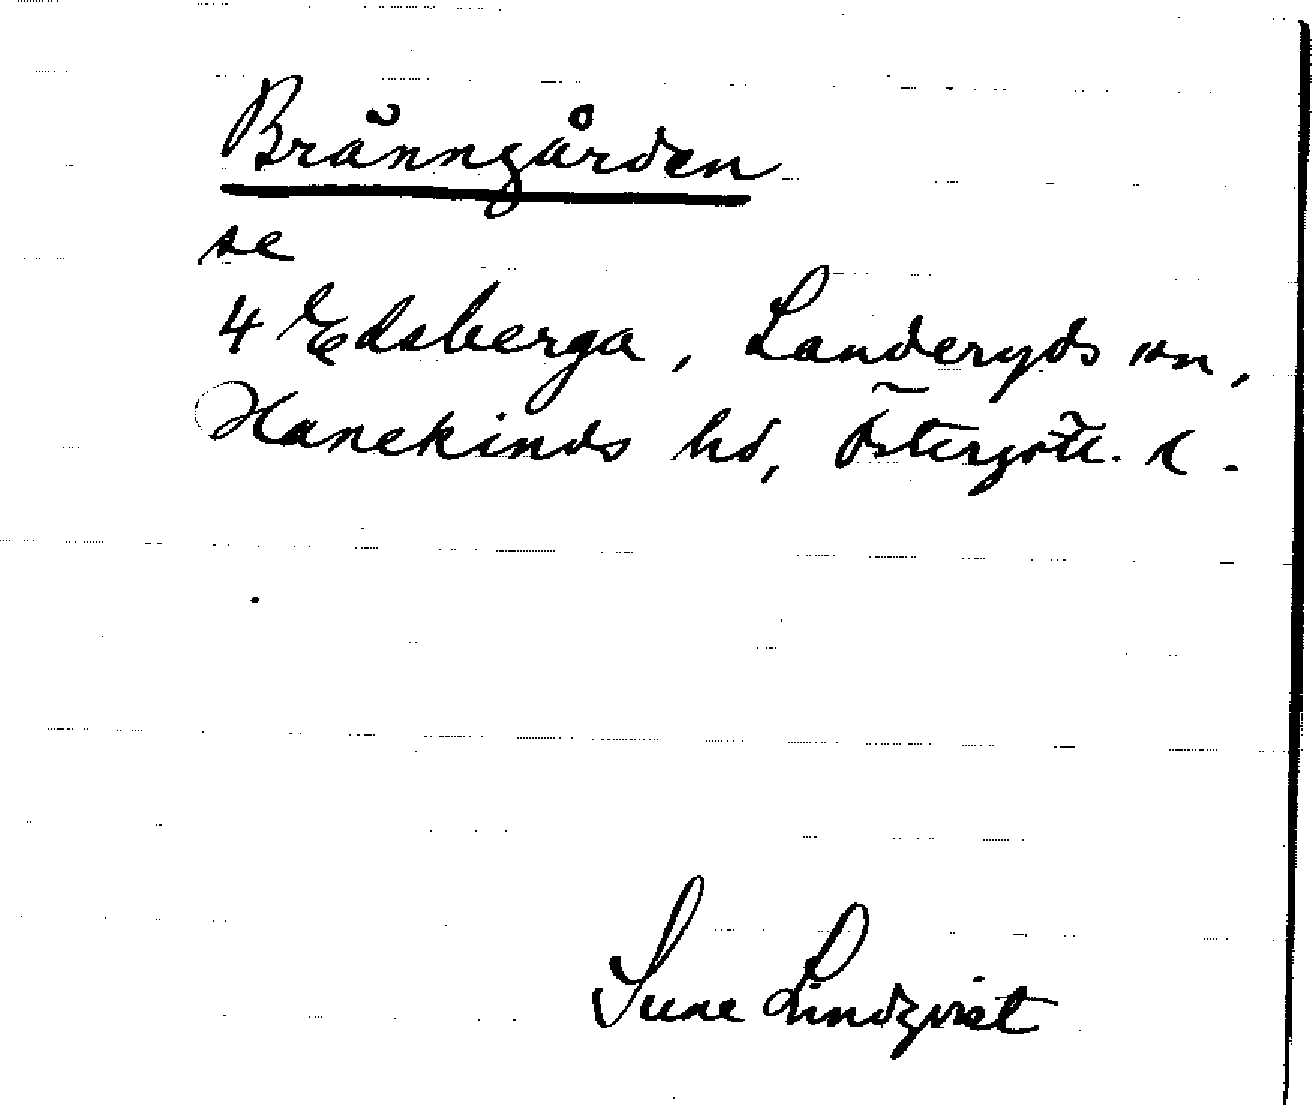 Bränngården
se
4 Edsberga, Landeryds sn,
Hanekinds hd, Östergötl. l.
Sune Lindqvist